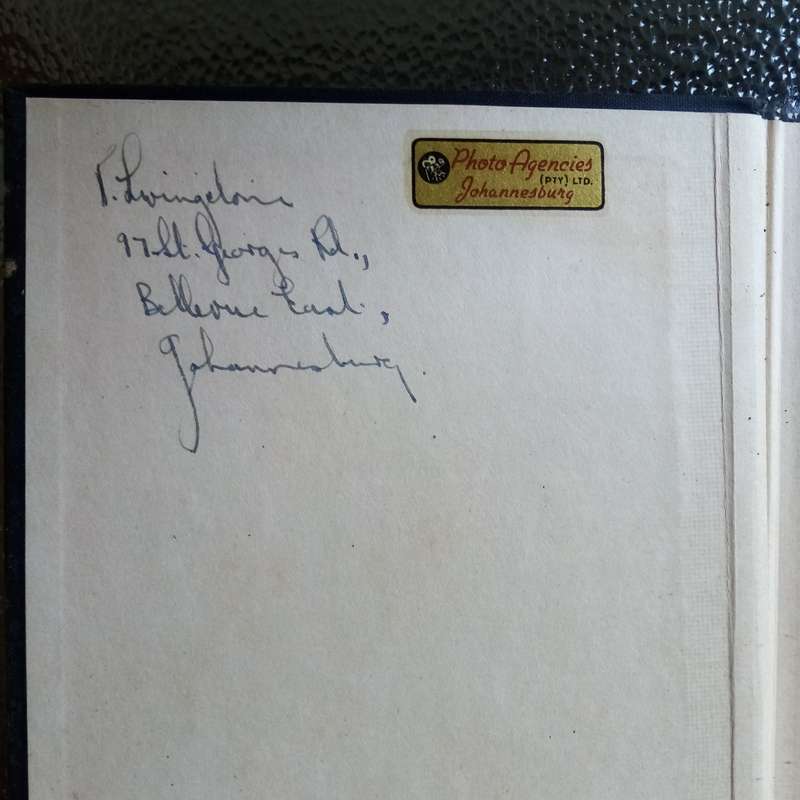 Livingstone
97 St. Georges Rd.,
Bellevue East,
Johannesburg.
Photo Agencies
(PTY) LTD.
Johannesburg